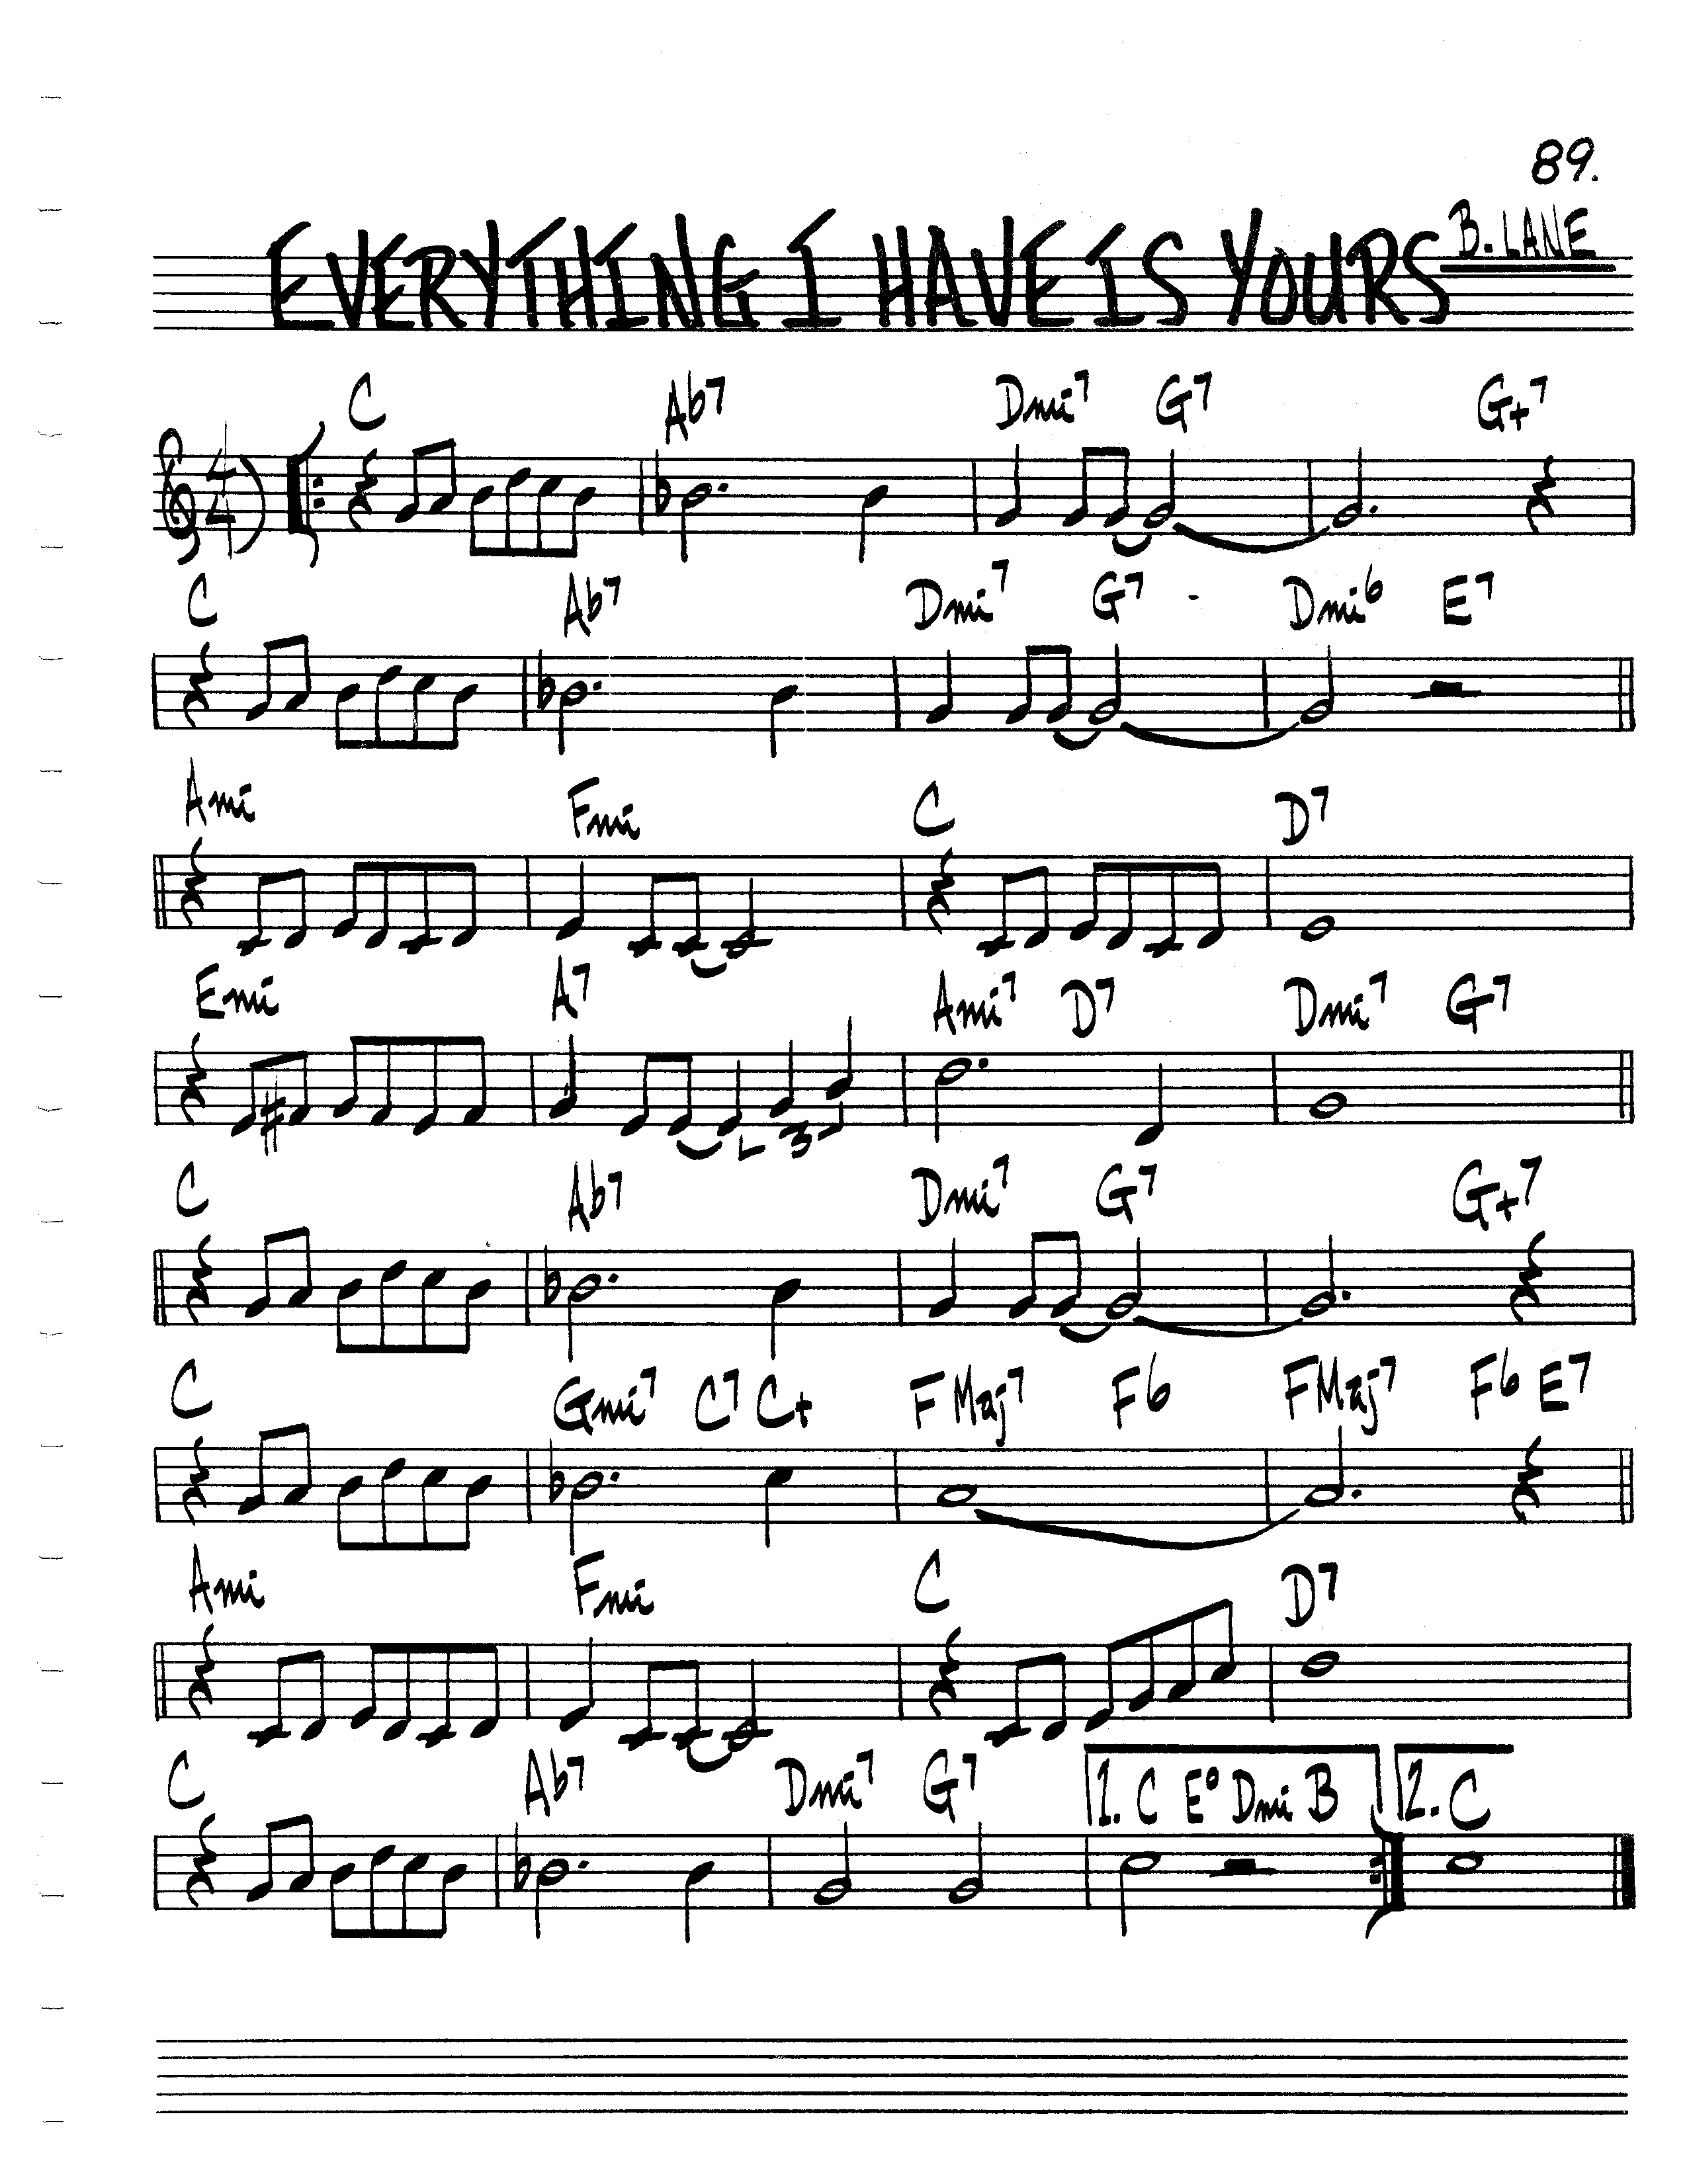 89.
EVERYTHING I HAVE IS YOURS B. LANE
C Ab7 Dmi7 G7 G+7
4
4
C Ab7 Dmi7 G7 - Dmi6 E7
Ami Fmi C D7
Emi A7 Ami7 D7 Dmi7 G7
3
C Ab7 Dmi7 G7 G+7
C Gmi7 C7 C+ FMaj7 F6 FMaj7 F6 E7
Ami Fmi C D7
C Ab7 Dmi7 G7 1. C E° Dmi B 2. C